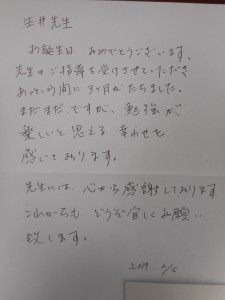 生井先生
お誕生日 おめでとうございます。
先生のご指導を受けさせていただき
あっという間に3ヶ月がたちました。
まだまだですが、勉強が
楽しいと思える 幸わせを
感じております。
先生には、心から感謝しております
これからも どうぞ宜しくお願い
致します。
2019